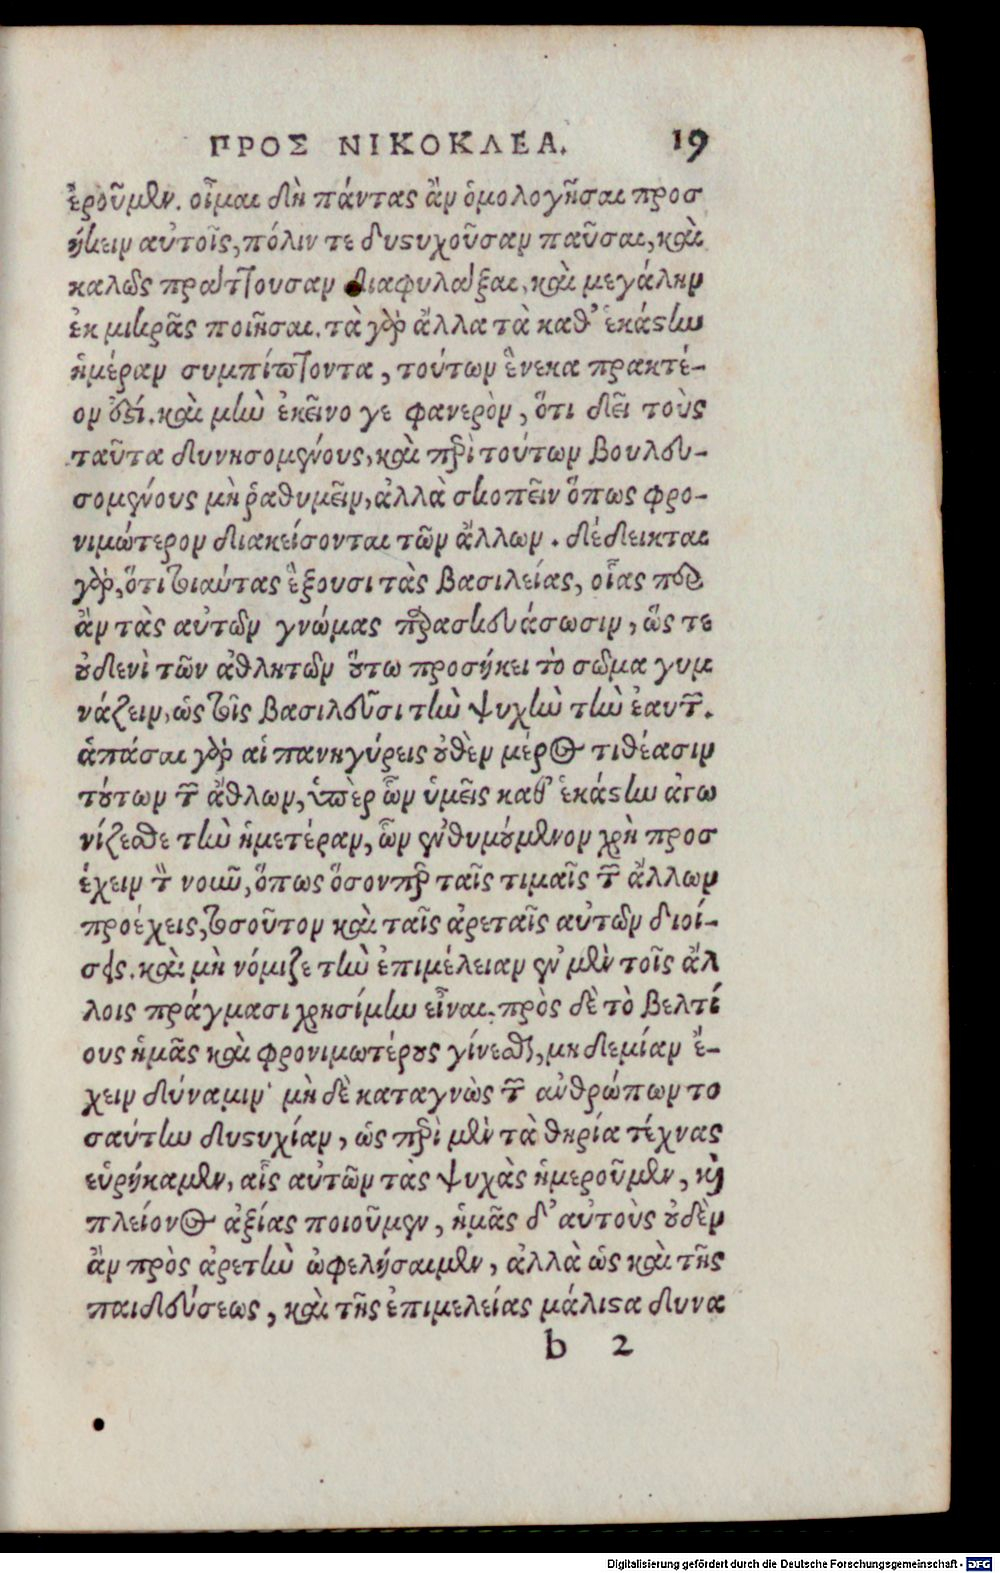 ΠΡΟΣ ΝΙΚΟΚΛΕΑ. 19
ἐροῦμεν. οἶμαι δὴ πάντας ἂν ὁμολογῆσαι προσ
ήκειν αὐτοῖς, πόλιν τε δυςυχοῦσαν παῦσαι, καὶ
καλῶς πράττουσαν διαφυλάξαι, καὶ μεγάλην
ἐκ μικρᾶς ποιῆσαι. τὰ γὰρ ἄλλα τὰ καθ’ ἑκάστην
ἡμέραν συμπίπτοντα, τούτων ἕνεκα πρακτέ-
ον ἐστί. καὶ μὴν ἐκεῖνο γε φανερὸν, ὅτι δεῖ τοὺς
ταῦτα δυνησομένους, καὶ περὶ τούτων βουλευ-
σομένους μὴ ῥαθυμεῖν, ἀλλὰ σκοπεῖν ὅπως φρο-
νιμώτερον διακείσονται τῶν ἄλλων. δέδεικται
γὰρ, ὅτι τοιαύτας ἕξουσι τὰς βασιλείας, οἵας περ
ἂν τὰς αὐτῶν γνώμας παρασκευάσωσιν, ὥς τε
οὐδενὶ τῶν ἀθλητῶν οὕτω προσήκει τὸ σῶμα γυμ
νάζειν, ὡς τοῖς βασιλεῦσι τὴν ψυχὴν τὴν ἑαυτῶν.
ἁπάσαι γὰρ αἱ πανηγύρεις οὐθὲν μέρος τιθέασιν
τούτων τῶν ἄθλων, ὑπὲρ ὧν ὑμεῖς καθ’ ἑκάστην ἀγω
νίζεσθε τὴν ἡμετέραν, ὧν ἐνθυμούμενον χρὴ προσ
έχειν τὸν νοῦν, ὅπως ὅσονπερ ταῖς τιμαῖς τῶν ἄλλων
προέχεις, τοσοῦτον καὶ ταῖς ἀρεταῖς αὐτῶν διοί-
σεις. καὶ μὴ νόμιζε τὴν ἐπιμέλειαν ἐν μὲν τοῖς ἄλ
λοις πράγμασι χρησίμην εἶναι. πρὸς δὲ τὸ βελτί
ους ἡμᾶς καὶ φρονιμωτέρους γίνεσθαι, μηδεμίαν ἔ-
χειν δύναμιν· μὴ δὲ καταγνὼς τῶν ἀνθρώπων το
σαύτην δυςυχίαν, ὡς περὶ μὲν τὰ θηρία τέχνας
εὑρήκαμεν, αἷς αὐτῶν τὰς ψυχὰς ἡμεροῦμεν, καὶ
πλείονος ἀξίας ποιοῦμεν, ἡμᾶς δ’ αὐτοὺς οὐδὲν
ἂν πρὸς ἀρετὴν ὠφελήσαιμεν, ἀλλὰ ὡς καὶ τῆς
παιδεύσεως, καὶ τῆς ἐπιμελείας μάλιστα δυνα
b 2
Digitalisierung gefördert durch die Deutsche Forschungsgemeinschaft - DFG